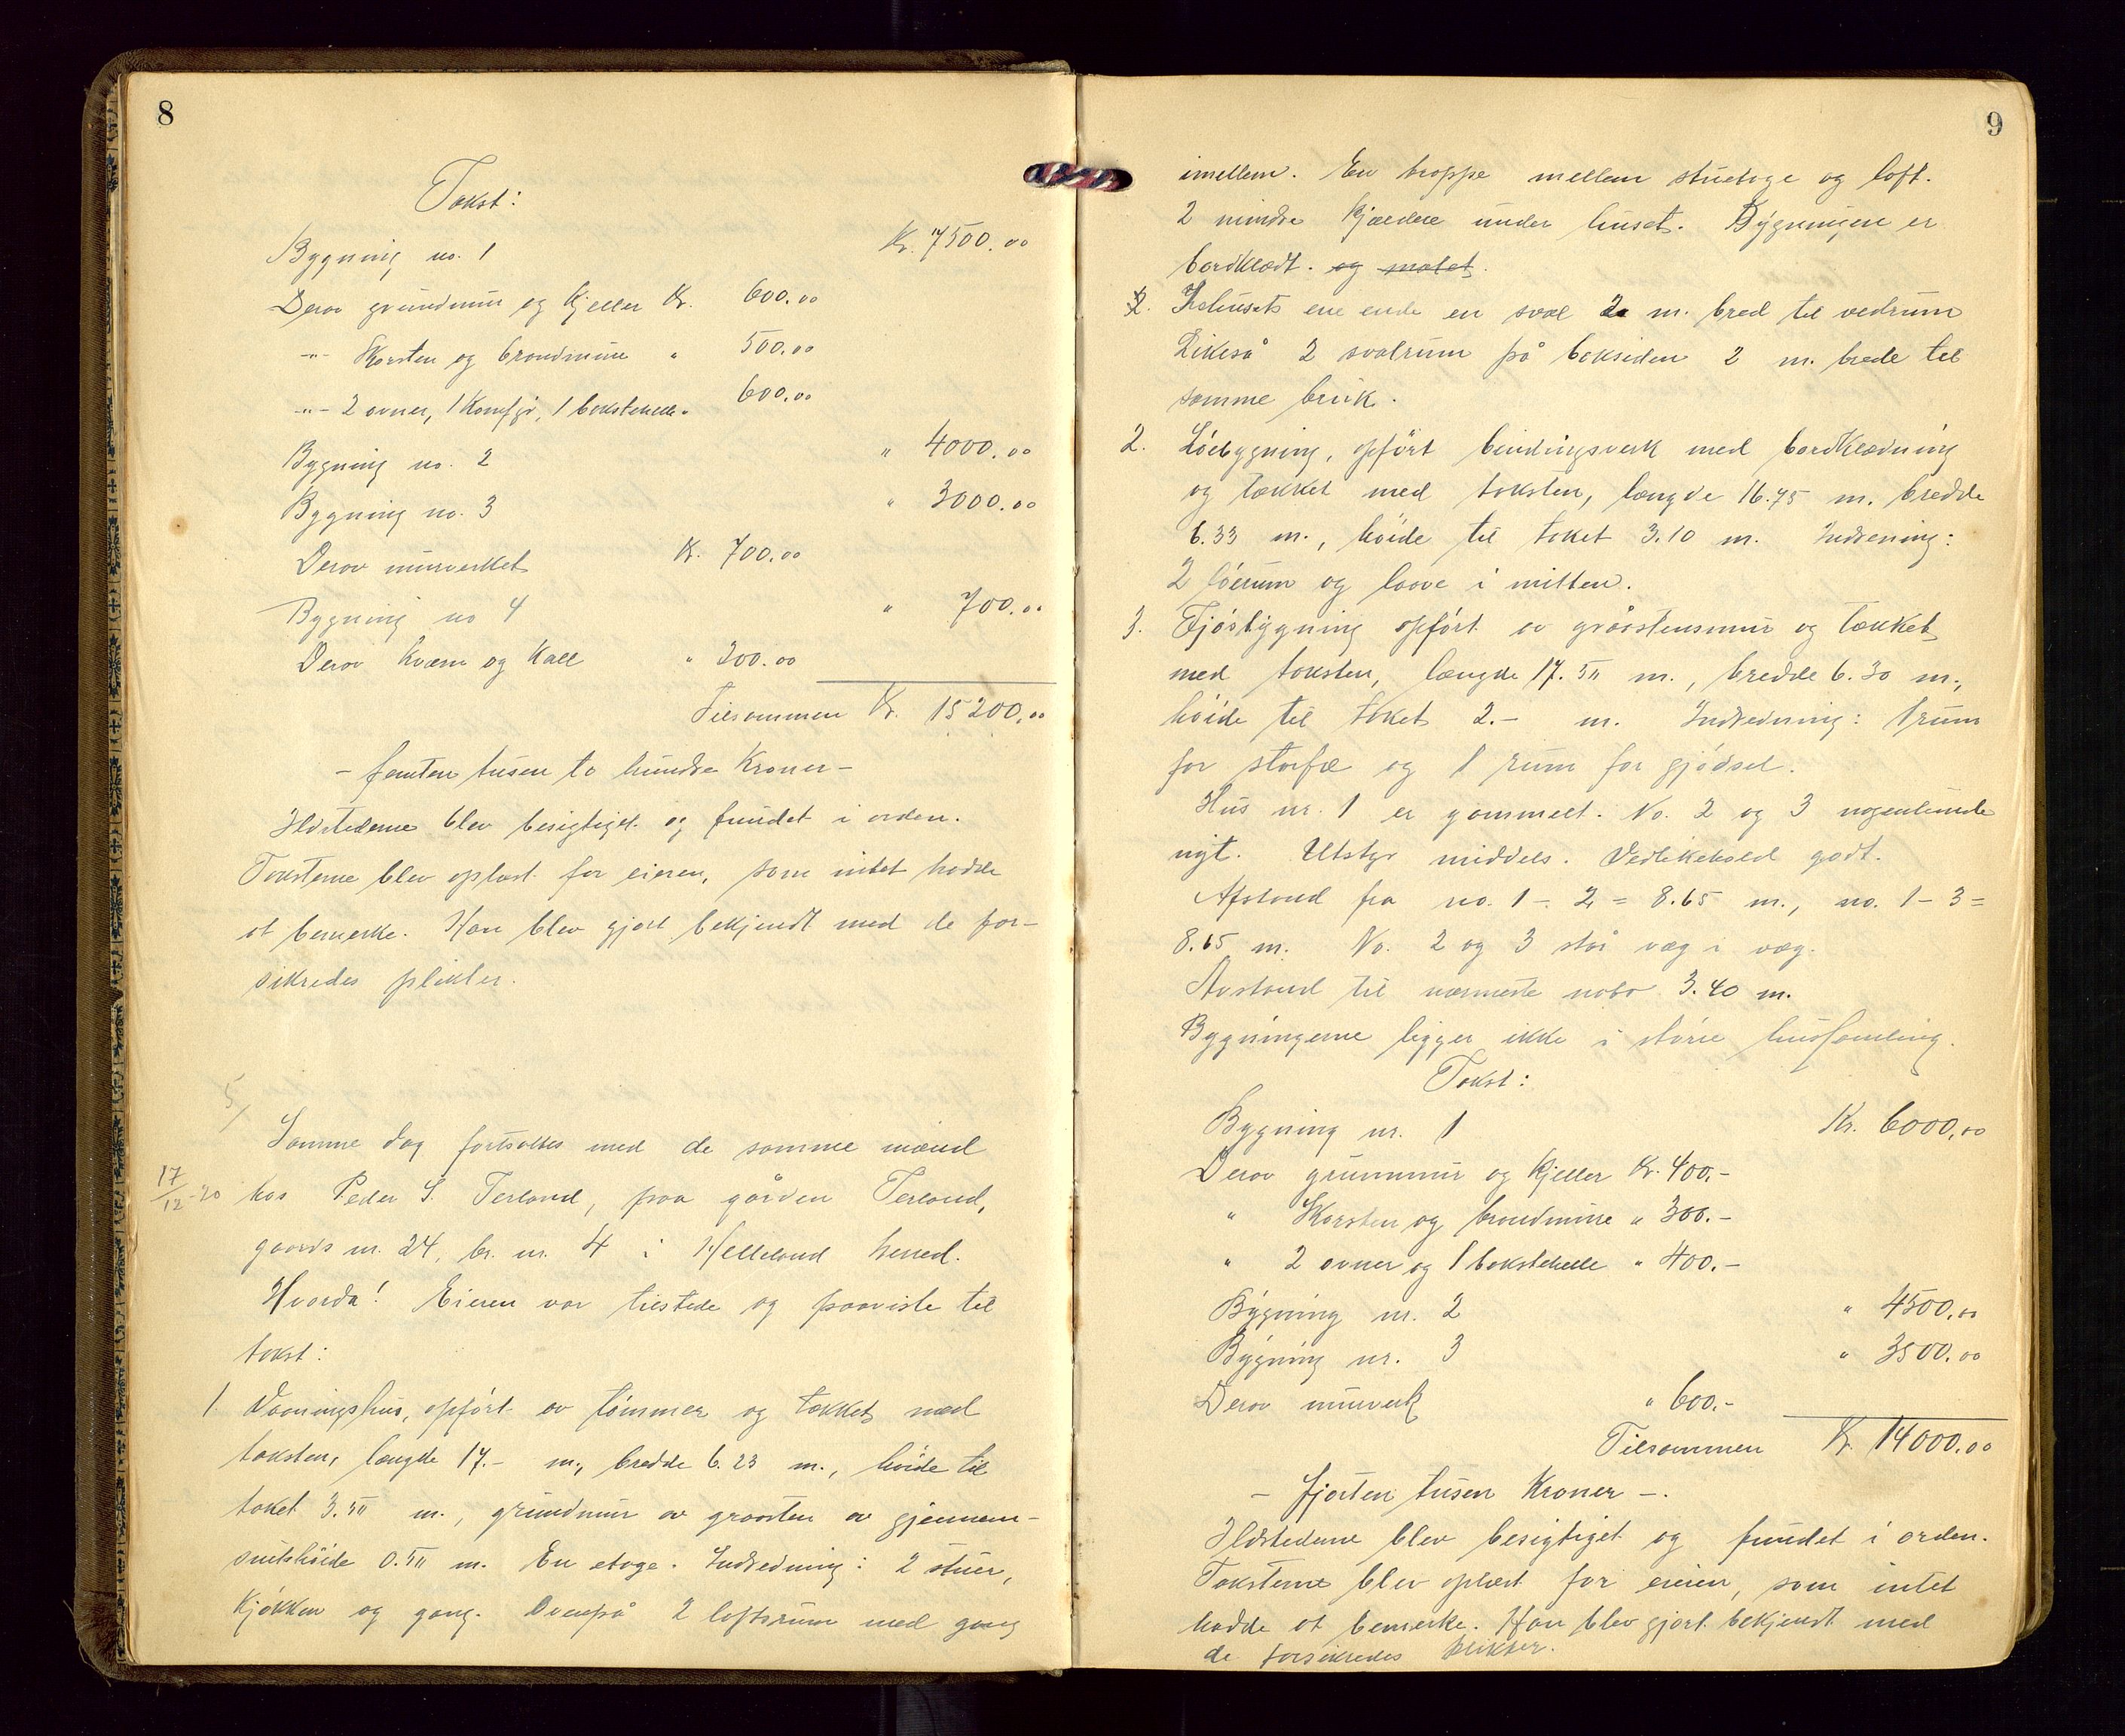 8
Takst:
Bygning no. 1 Kr. 7500.00
Derav grundmur og kjeller Kr. 600.00
-"- Skorsten og brandmure " 500.00
-"- 2 ovner, 1 Komfyr, 1 bakstehelle " 600.00
Bygning no. 2 " 4000.00
Bygning no. 3 " 3000.00
Derav murverket Kr. 700.00
Bygning no 4 " 700.00
Derav kværn og kall " 200.00
Tilsammen Kr. 15200.00
- femten tusen to hundre Kroner -
Ildstederne blev besigtiget og fundet i orden.
Taksterne blev oplæst for eieren, som intet hadde
at bemerke. Han blev gjort bekjendt med de for-
sikredes plikter.
5/
Samme dag fortsattes med de samme mænd
17/12-20 hos Peder S. Terland, paa gården Terland,
gaards nr. 24, br. nr. 4 i Helleland herred.
Hvorda! Eieren var tilstede og paaviste til
takst:
1 Vaaningshus, opført av tømmer og tækket med
taksten, længde 17.- m., bredde 6.23 m., høide til
taket 3.50 m., grundmur av graasten av gjennem-
snitshøide 0.50 m. En etage. Indredning: 2 stuer,
kjøkken og gang. Ovenpå 2 loftsrum med gang
9
imellem. En trappe mellem stuetage og loft.
2 mindre kjældere under huset. Bygningen er
bordklædt. og malet.
2. I husets ene ende en sval 2 m. bred til vedrum
Likeså 2 svalrum på baksiden 2 m. brede til
samme bruk.
2. Løebygning, opført bindingsverk med bordklædning
og tækket med taksten, længde 16.75 m. bredde
6.33 m., høide til taket 3.10 m. Indrening:
2 løerum og laave i mitten.
3. Fjøsbygning opført av gråastensmur og tækket
med taksten, længde 17.50 m., bredde 6.30 m.,
høide til taket 2.- m. Indredning: 1 rum
for storfæ og 1 rum for gjødsel.
Hus nr. 1 er gammelt. No. 2 og 3 nogenlunde
nyt. Utstyr middels. Vedlikehold godt.
Afstand fra no. 1 - 2 = 8.65 m., no. 1 - 3 =
8.65 m. No. 2 og 3 står væg i væg.
Avstand til nærmeste nabo 3.40 m.
Bygningerne ligger ikke i større hussamling.
Takst:
Bygning nr. 1 Kr. 6000,00
Derav grunnmur og kjeller Kr. 400.-
" Skorsten og brandmure " 300.-
" 2 ovner og 1 bakstehelle " 400.-
Bygning nr. 2 " 4500,00
Bygning nr. 3 " 3500.00
Derav murverk " 600.-
Tilsammen Kr. 14000.00
- fjorten tusen Kroner -.
Ildstederne blev besigtiget og fundet i orden.
Taksterne blev oplæst for eieren, som intet
hadde at bemerke. Han blev gjort bekjendt med
de forsikredes plikter.